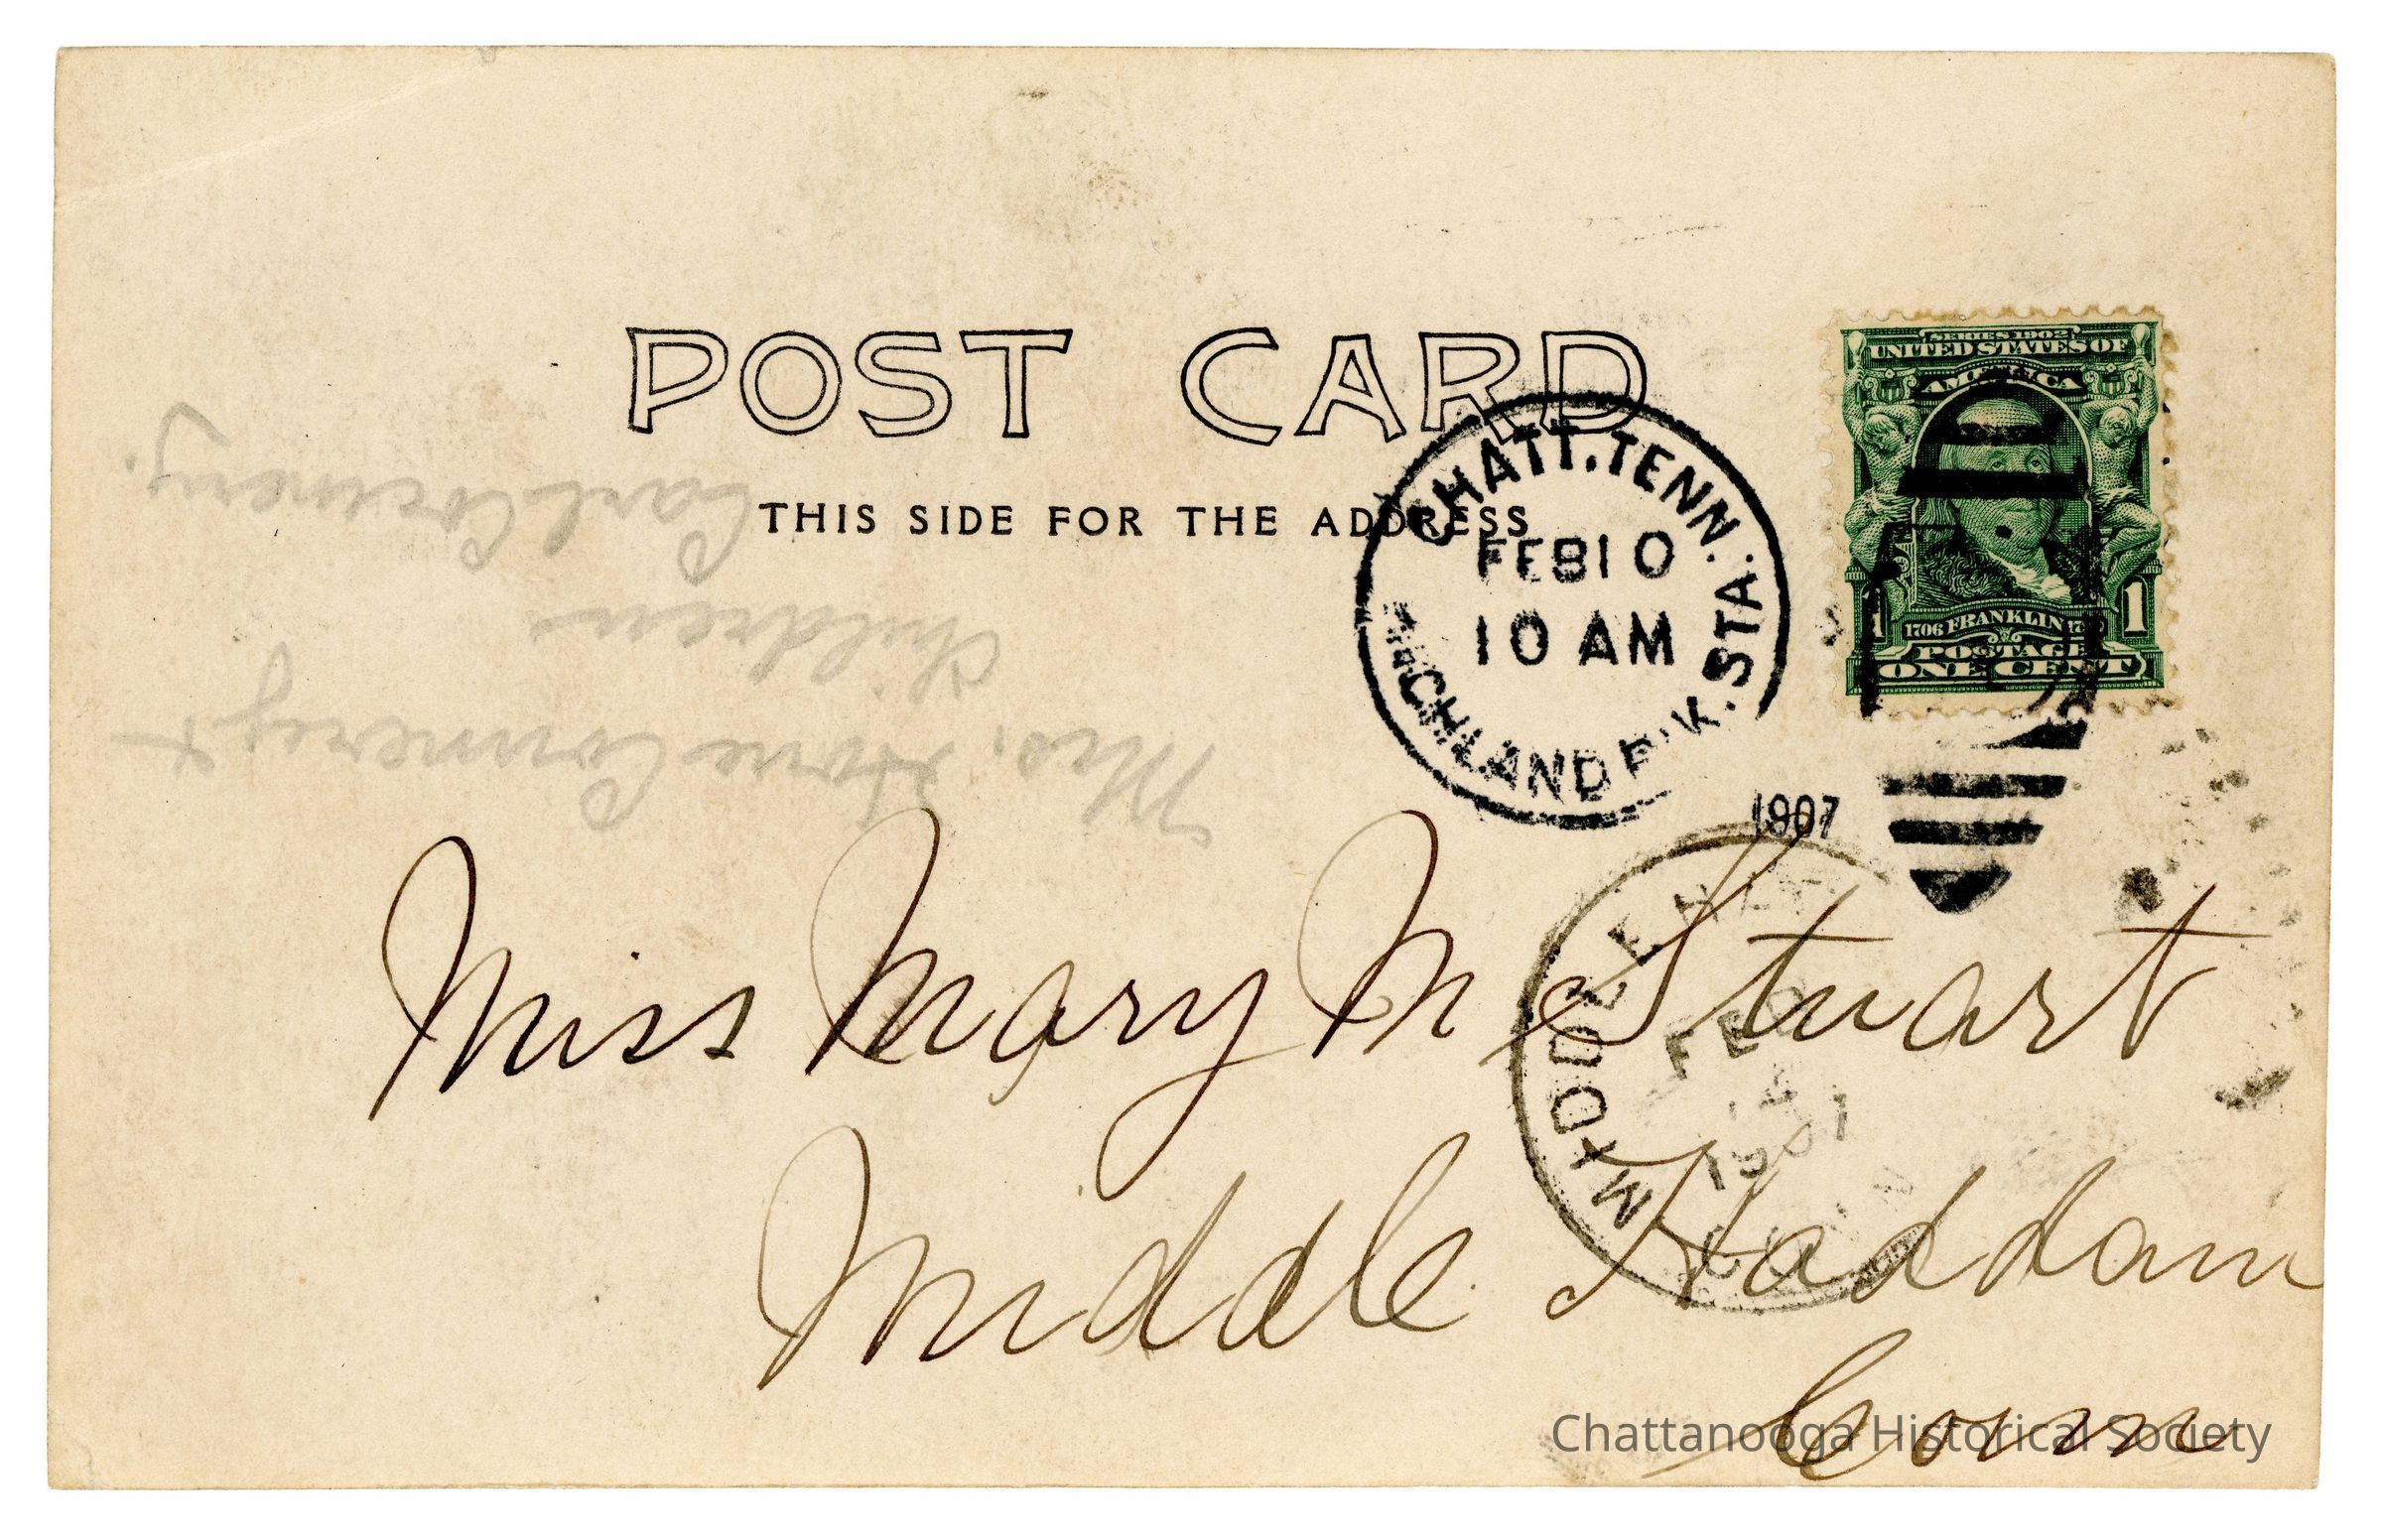 POST CARD
THIS SIDE FOR THE ADDRESS
SERIES 1902
UNITED STATES OF
AMERICA
1706 FRANKLIN
1 1
POSTAGE
ONE CENT
CHATT. TENN.
FEB 10
10 AM
1907
HIGHLAND P'K. STA.
Miss Mary M Stuart
Middle Haddam
Conn
MIDDLE
FEB
1907
CONN
Mrs.
children
Carl
Chattanooga Historical Society